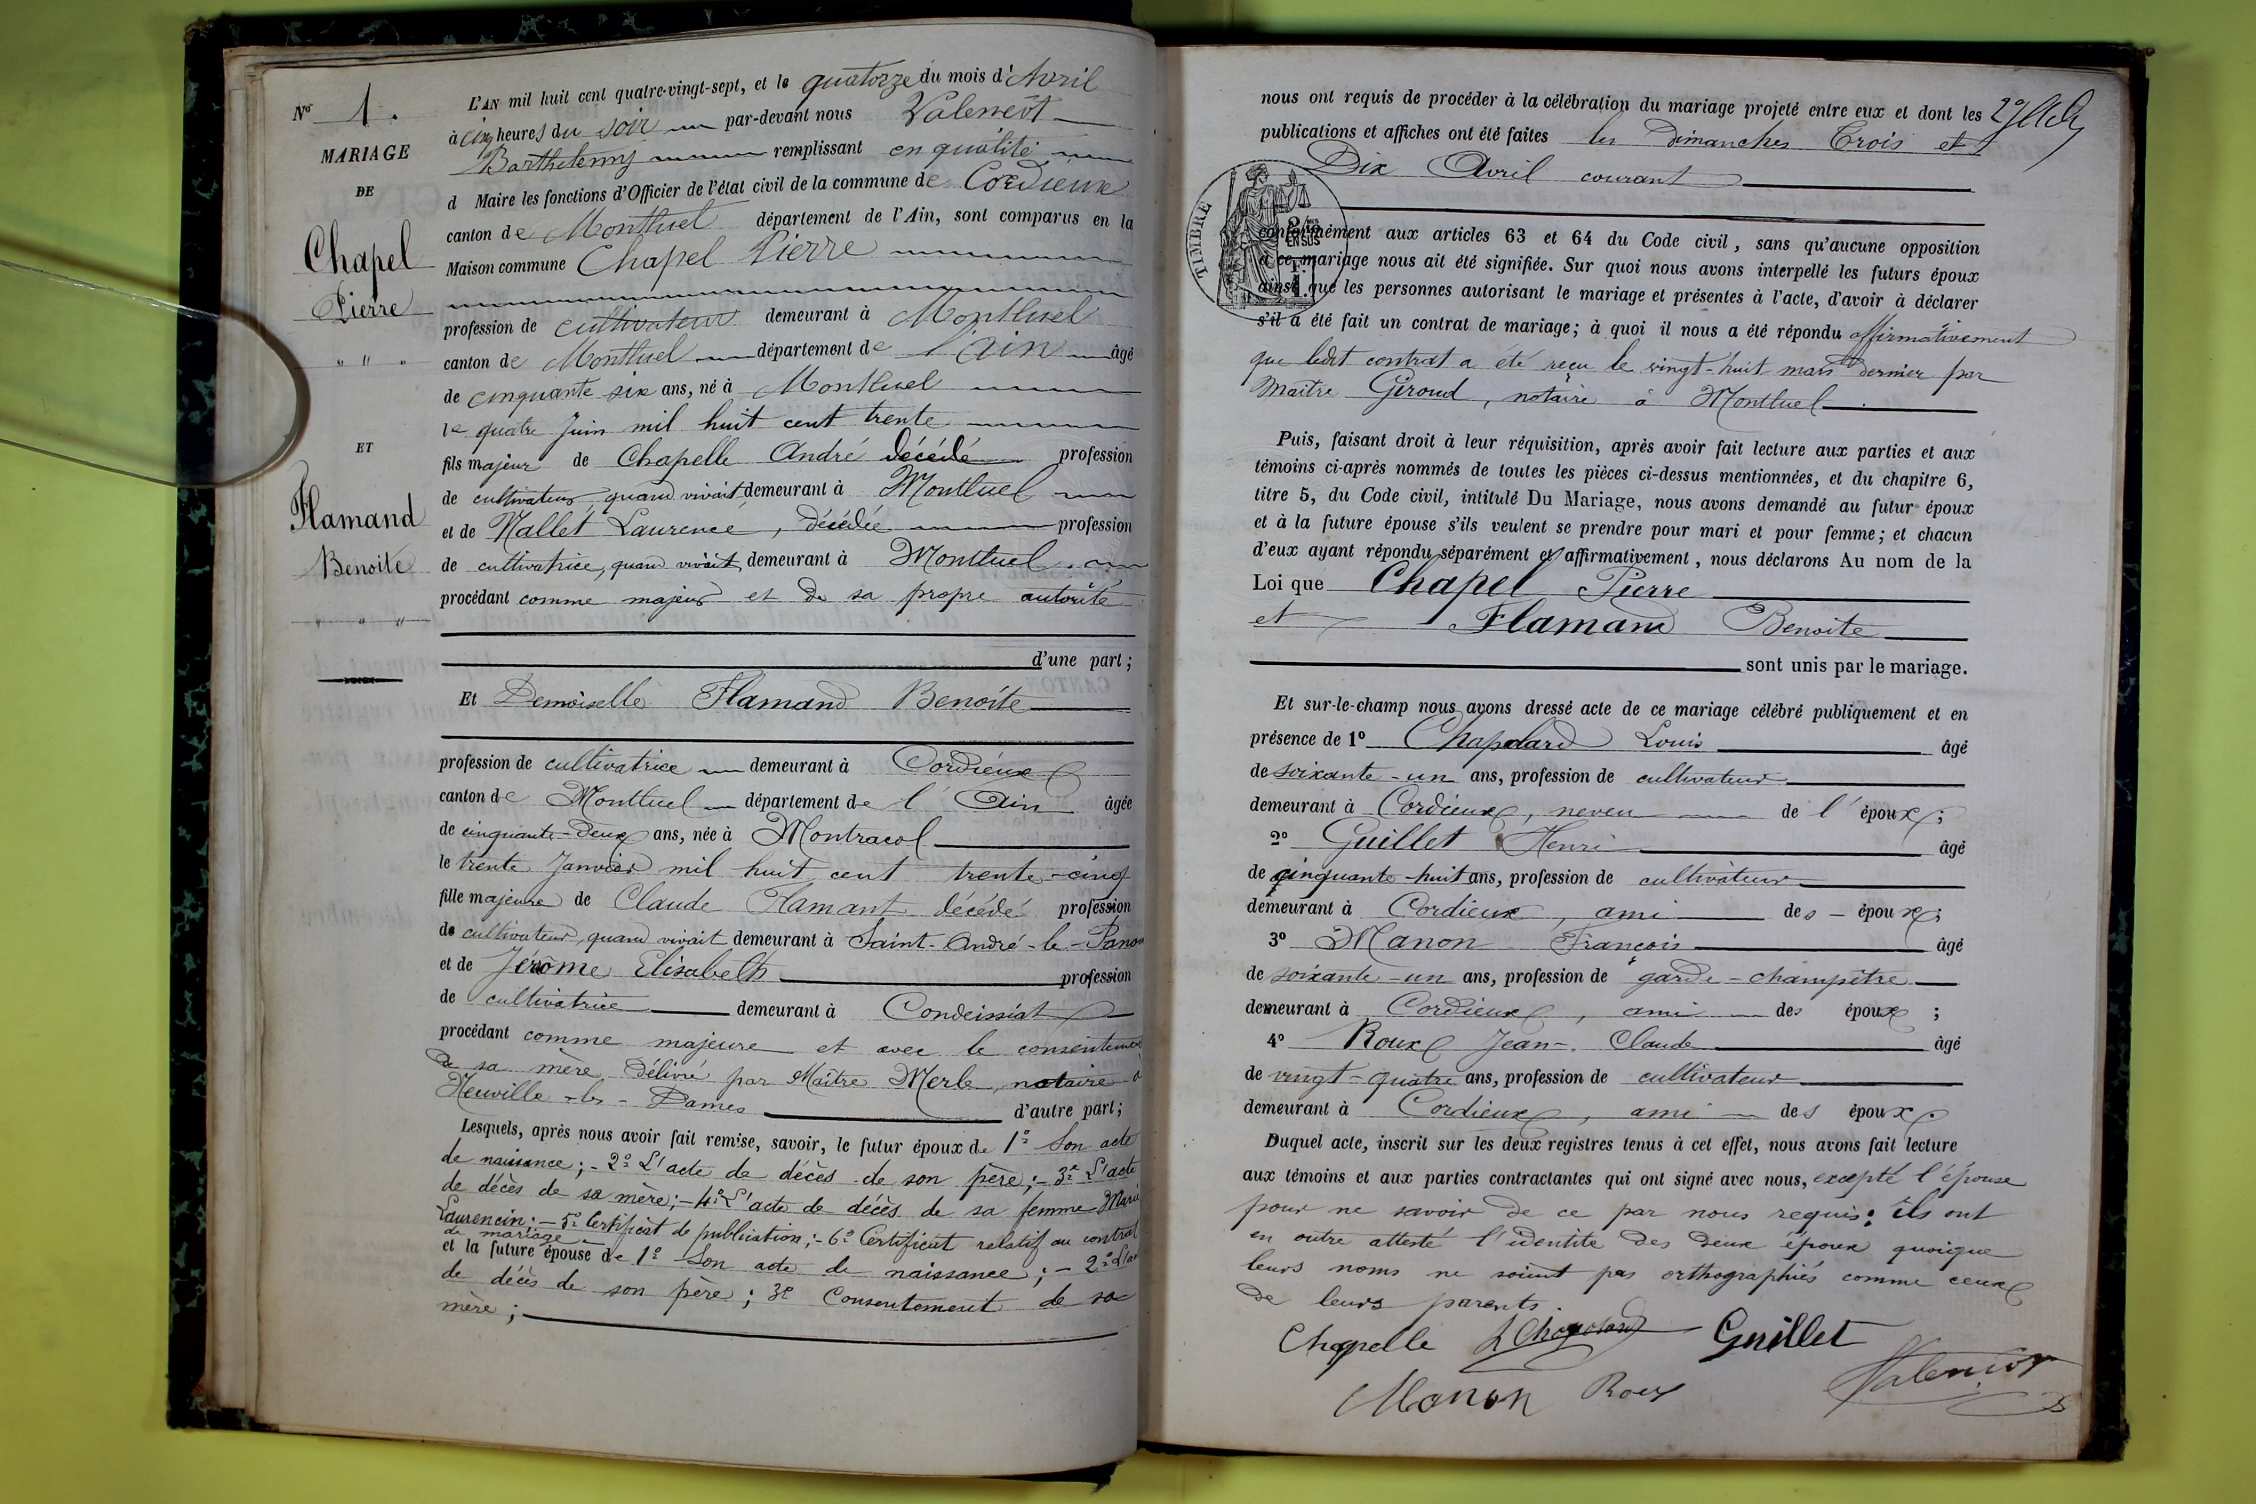 No 1.
MARIAGE
DE
Chapel
Pierre
" " "
ET
Flamand
Benoite
" " "
L'AN mil huit cent quatre-vingt-sept, et le quatorze du mois d'Avril
à cinq heures du soir par-devant nous Valencot
Barthelemy remplissant en qualité
d Maire les fonctions d'Officier de l'état civil de la commune de Cordieux
canton de Montluel département de l'Ain, sont comparus en la
Maison commune Chapel Pierre
profession de cultivateur demeurant à Montluel
canton de Montluel département de l'Ain âgé
de cinquante six ans, né à Montluel
le quatre Juin mil huit cent trente
fils majeur de Chapelle André décédé profession
de cultivateur, quand vivait demeurant à Montluel
et de Mallet Laurence, décédée profession
de cultivatrice, quand vivait demeurant à Montluel
procédant comme majeur et de sa propre autorité
d'une part;
Et Demoiselle Flamand Benoite
profession de cultivatrice demeurant à Cordieux
canton de Montluel département de l'Ain âgée
de cinquante-deux ans, née à Montracol
le trente Janvier mil huit cent trente-cinq
fille majeure de Claude Flamant décédé profession
de cultivateur, quand vivait demeurant à Saint-André-le-Panoux
et de Jérôme Elisabeth profession
de cultivatrice demeurant à Condeissiat
procédant comme majeure et avec le consentement
de sa mère délivré par Maître Merle, notaire à
Neuville-les-Dames d'autre part;
Lesquels, après nous avoir fait remise, savoir, le futur époux de 1º Son acte
de naissance; - 2º L'acte de décès de son père; - 3º L'acte
de décès de sa mère; - 4º L'acte de décès de sa femme Marie
Laurencin; - 5º Certificat de publication; - 6º Certificat relatif au contrat
de mariage
et la future épouse de 1º Son acte de naissance; - 2º L'acte
de décès de son père; 3º Consentement de sa
mère;
nous ont requis de procéder à la célébration du mariage projeté entre eux et dont les
publications et affiches ont été faites les Dimanches Trois et
Dix Avril courant
TIMBRE
2/10 EN SUS
conformément aux articles 63 et 64 du Code civil, sans qu'aucune opposition
à ce mariage nous ait été signifiée. Sur quoi nous avons interpellé les futurs époux
ainsi que les personnes autorisant le mariage et présentes à l'acte, d'avoir à déclarer
s'il a été fait un contrat de mariage; à quoi il nous a été répondu affirmativement
que ledit contrat a été reçu le vingt-huit mars dernier par
Maître Giroud, notaire à Montluel.
Puis, faisant droit à leur réquisition, après avoir fait lecture aux parties et aux
témoins ci-après nommés de toutes les pièces ci-dessus mentionnées, et du chapitre 6,
titre 5, du Code civil, intitulé Du Mariage, nous avons demandé au futur époux
et à la future épouse s'ils veulent se prendre pour mari et pour femme; et chacun
d'eux ayant répondu séparément et affirmativement, nous déclarons Au nom de la
Loi que Chapel Pierre
et Flamand Benoite
sont unis par le mariage.
Et sur-le-champ nous avons dressé acte de ce mariage célébré publiquement et en
présence de 1º Chapolard Louis âgé
de soixante-un ans, profession de cultivateur
demeurant à Cordieux, neveu de l'époux;
2º Guillet Henri âgé
de cinquante-huit ans, profession de cultivateur
demeurant à Cordieux, ami des époux;
3º Manon François âgé
de soixante-un ans, profession de garde-champêtre
demeurant à Cordieux, ami des époux;
4º Roux Jean-Claude âgé
de vingt-quatre ans, profession de cultivateur
demeurant à Cordieux, ami des époux.
Duquel acte, inscrit sur les deux registres tenus à cet effet, nous avons fait lecture
aux témoins et aux parties contractantes qui ont signé avec nous, excepté l'épouse
pour ne savoir de ce par nous requis; ils ont
en outre attesté l'identité des deux époux quoique
leurs noms ne soient pas orthographiés comme ceux
de leurs parents.
Chapelle L Chapolard Guillet
Manon Roux Valencot